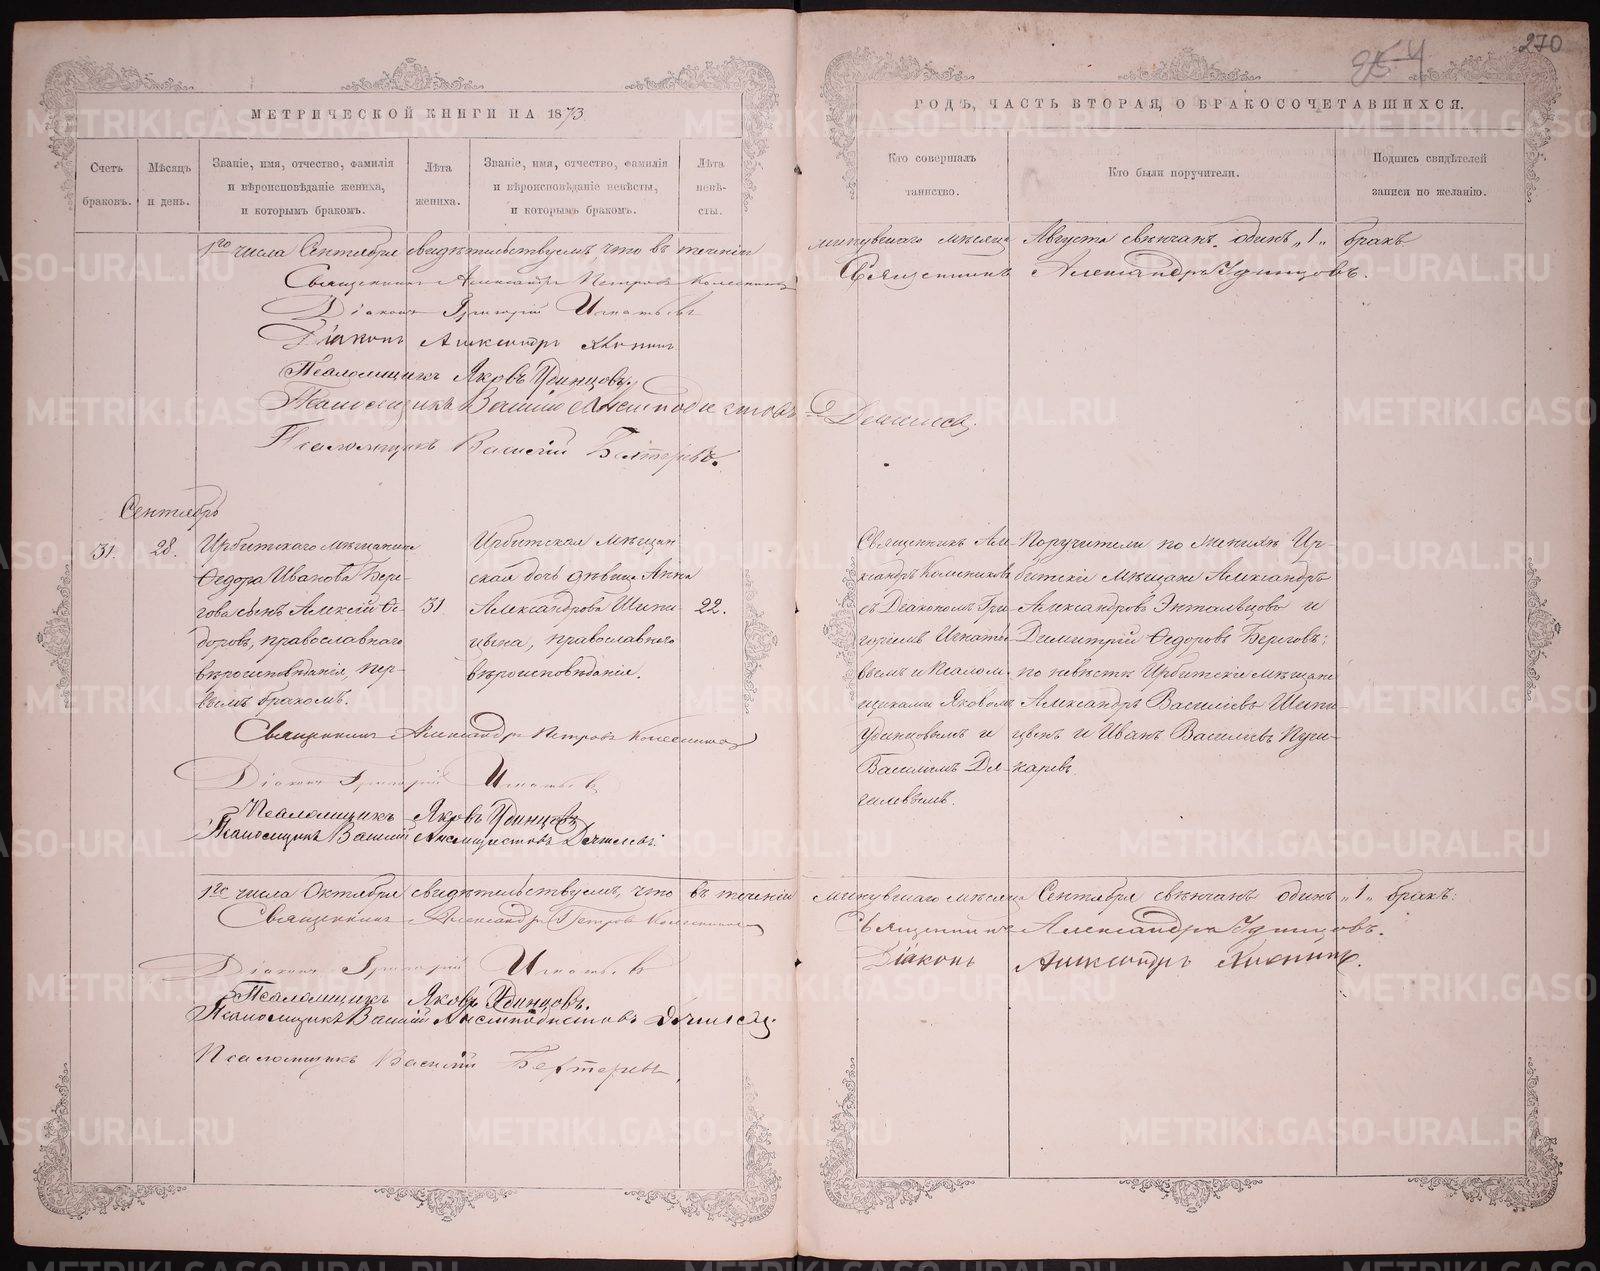 270
МЕТРИЧЕСКОЙ КНИГИ НА 1873
ГОДЪ, ЧАСТЬ ВТОРАЯ, О БРАКОСОЧЕТАВШИХСЯ.
Счетъ браковъ.
Мѣсяцъ и день.
Званіе, имя, отчество, фамилія
и вѣроисповѣданіе жениха,
и которымъ бракомъ.
Лѣта жениха.
Званіе, имя, отчество, фамилія
и вѣроисповѣданіе невѣсты,
и которымъ бракомъ.
Лѣта невѣ-
сты.
Кто совершалъ
таинство.
Кто были поручители.
Подпись свидѣтелей
записи по желанію.
1го числа Сентября свидѣтельствуемъ, что въ теченіи минувшаго мѣсяца Августа вѣнчанъ одинъ „1„ бракъ
Священникъ Александръ Петровъ Колесниковъ
Священникъ Александръ Удинцовъ.
Діаконъ Григорій Игнатьевъ
Діаконъ Александръ
Псаломщикъ Яковъ Удинцовъ.
Псаломщикъ Василій
Псаломщикъ Василій
Сентябрь
31.
28.
Ирбитскаго мѣщанина
Ѳедора Иванова Бере-
гова сынъ Алексій Ѳе-
доровъ, православнаго
вѣроисповѣданія, пер-
вымъ бракомъ.
31
Ирбитская мѣщан
ская дочь дѣвица Анна
Александрова Шипи-
цына, православнаго
вѣроисповѣданія.
22.
Священникъ Але-
ксандръ Колесниковъ
съ Діакономъ Гри-
горіемъ Игнатье-
вымъ и Псалом-
щиками Яковомъ
Удинцовымъ и
Василіемъ
Поручители по женихѣ Ир-
битскіе мѣщане Александръ
Александровъ и
Димитрій Ѳедоровъ Береговъ;
по невѣстѣ Ирбитскіе мѣщане
Александръ Васильевъ Шипи-
цынъ и Иванъ Васильевъ
Священникъ Александръ Петровъ Колесниковъ
Діаконъ Григорій Игнатьевъ
Псаломщикъ Яковъ Удинцовъ
Псаломщикъ Василій
1го числа Октября свидѣтельствуемъ, что въ теченіи минувшаго мѣсяца Сентября вѣнчанъ одинъ „1„ бракъ:
Священникъ Александръ Петровъ Колесниковъ
Священникъ Александръ Удинцовъ.
Діаконъ Григорій Игнатьевъ
Діаконъ Александръ
Псаломщикъ Яковъ Удинцовъ.
Псаломщикъ Василій
Псаломщикъ Василій
METRIKI.GASO-URAL.RU